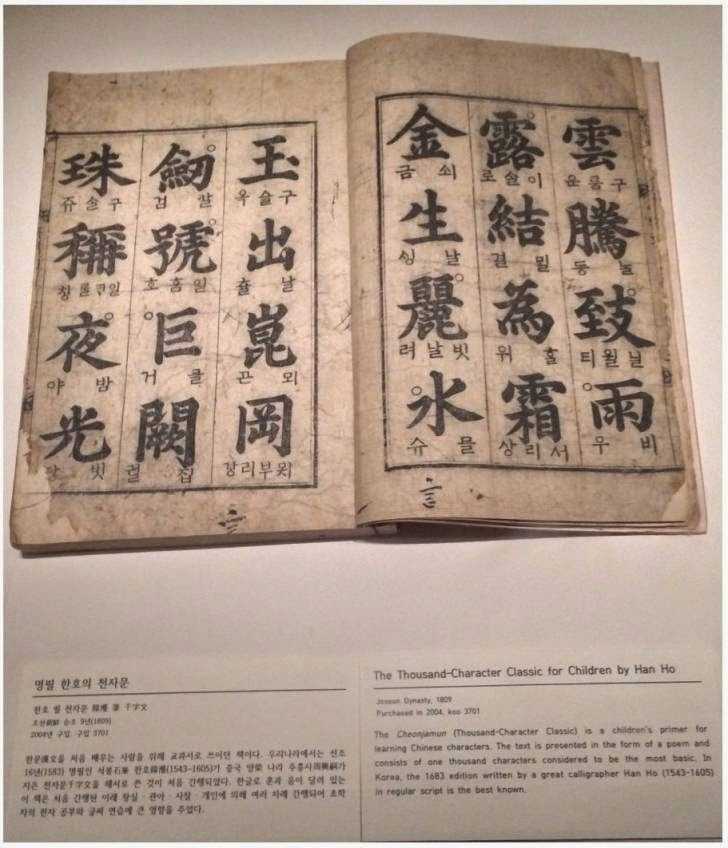 雲 구룸 운 騰 놀 등 致 닐월 티 雨 비 우
露 이슬 로 結 밀 결 為 홀 위 霜 서리 상
金 쇠 금 生 날 싱 麗 빗날 려 水 믈 슈
玉 구슬 옥 出 날 츌 崑 뫼 곤 岡 묏부리 강
劒 칼 검 號 일홈 호 巨 클 거 闕 집 궐
珠 구슬 쥬 稱 칭 夜 밤 야 光 빗
명필 한호의 천자문
한호 필 천자문 韓濩 筆 千字文
조선朝鮮 순조 9년(1809)
2004년 구입 구입 3701
한문漢文을 처음 배우는 사람을 위해 교과서로 쓰이던 책이다. 우리나라에서는 선조
16년(1583) 명필인 석봉石峯 한호韓濩(1543-1605)가 중국 양梁 나라 주흥사周興嗣가
지은 천자문千字文을 해서로 쓴 것이 처음 간행되었다. 한글로 훈과 음이 달려 있는
이 책은 처음 간행된 이래 왕실·관아·사찰·개인에 의해 여러 차례 간행되어 초학
자의 한자 공부와 글씨 연습에 큰 영향을 주었다.
The Thousand-Character Classic for Children by Han Ho
Joseon Dynasty, 1809
Purchased in 2004, koo 3701
The Cheonjamun (Thousand-Character Classic) is a children's primer for
learning Chinese characters. The text is presented in the form of a poem and
consists of one thousand characters considered to be the most basic. In
Korea, the 1683 edition written by a great calligrapher Han Ho (1543-1605)
in regular script is the best known.